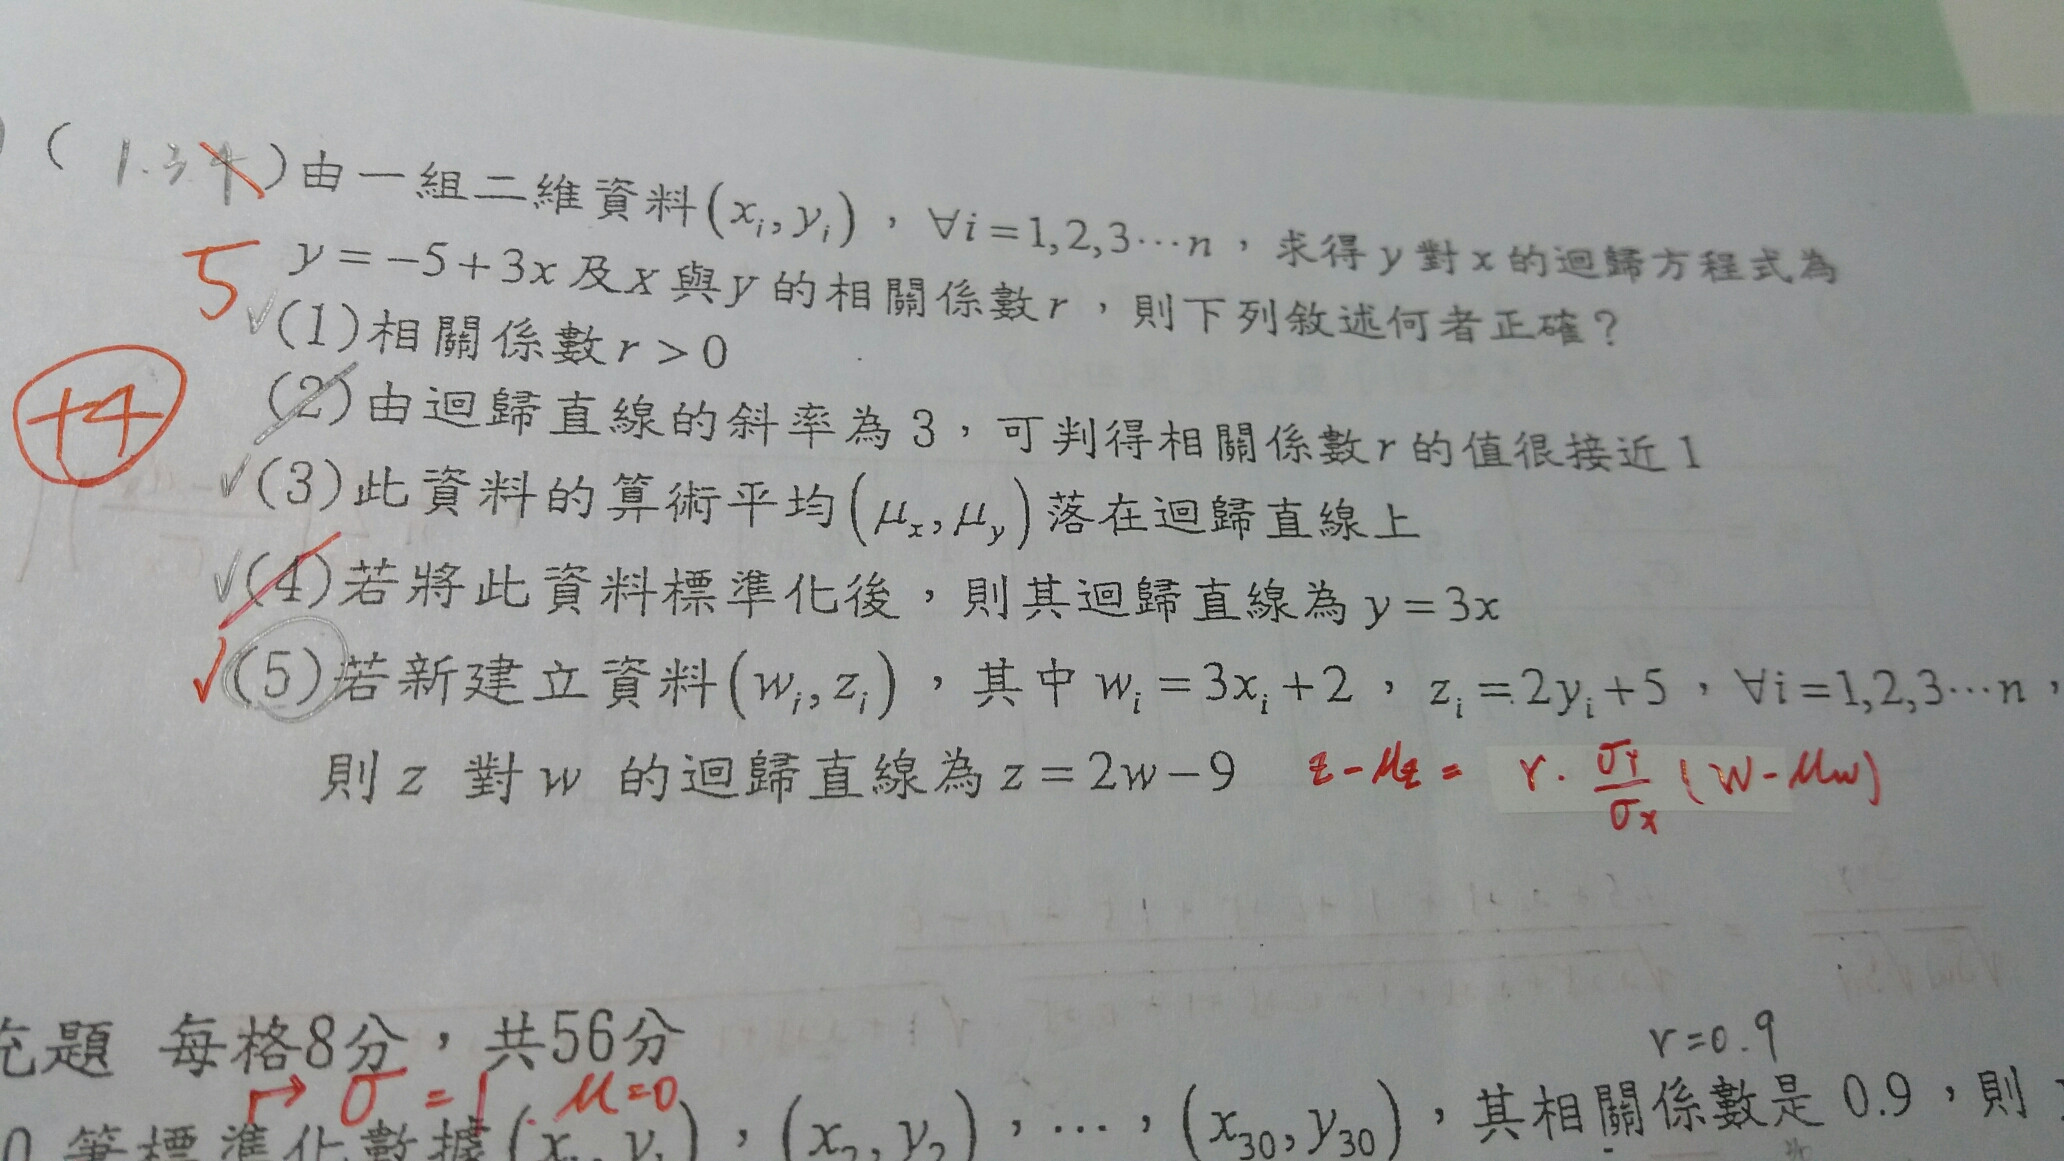 ( 1.3.4 ) 由一組二維資料(xᵢ, yᵢ)，∀i=1,2,3⋯n，求得y對x的迴歸方程式為
5 y=−5+3x及x與y的相關係數r，則下列敘述何者正確？
✓(1)相關係數r>0
+4
(2)由迴歸直線的斜率為3，可判得相關係數r的值很接近1
✓(3)此資料的算術平均(μₓ, μᵧ)落在迴歸直線上
✓(4)若將此資料標準化後，則其迴歸直線為y=3x
✓(5)若新建立資料(wᵢ, zᵢ)，其中wᵢ=3xᵢ+2，zᵢ=2yᵢ+5，∀i=1,2,3⋯n，
則z 對w 的迴歸直線為z=2w−9 z-μz = r·σY/σx (W-μw)
充題 每格8分，共56分
r=0.9
σ=1. μ=0
0 筆標準化數據(x₁, y₁)，(x₂, y₂)，⋯，(x₃₀, y₃₀)，其相關係數是0.9，則